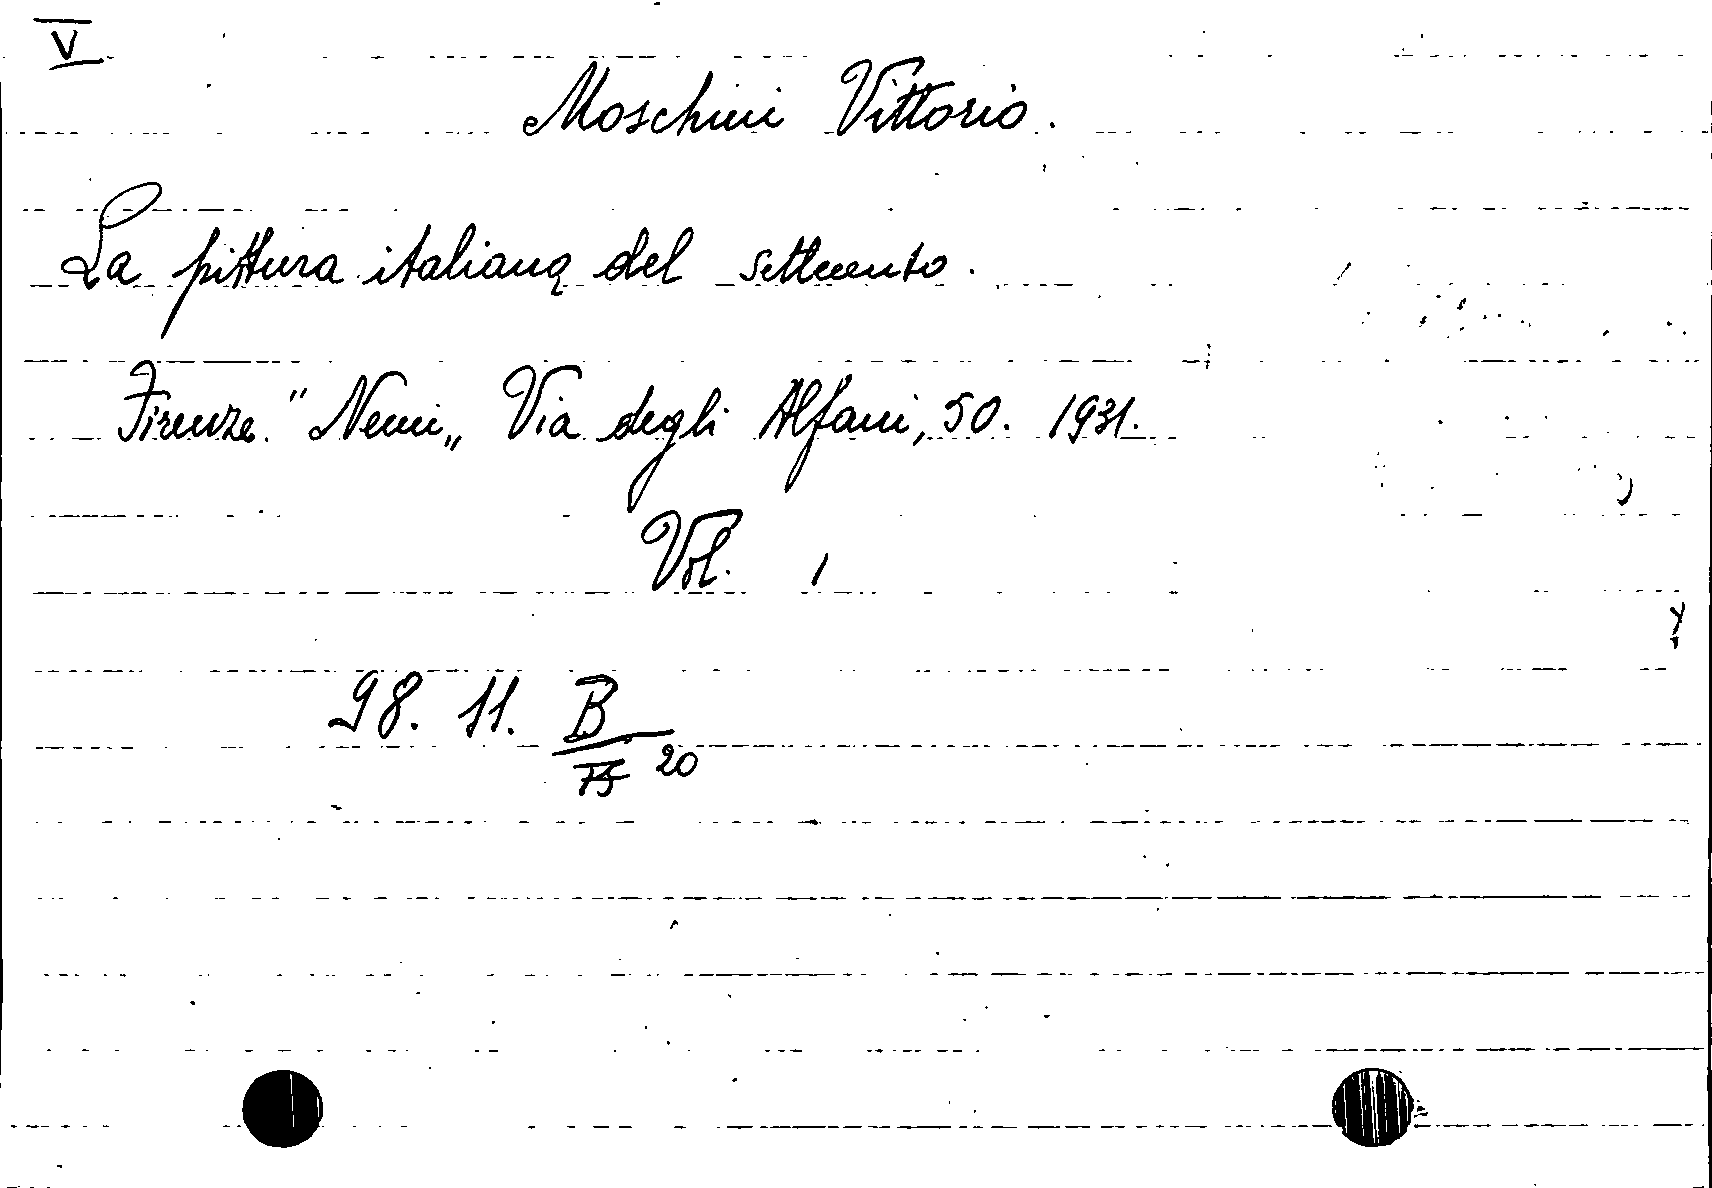 V
Moschini Vittorio.
La pittura italiana del settecento.
Firenze. "Nemi„ Via degli Alfani, 50. 1931.
Vol. 1
98. 11. B
75 20